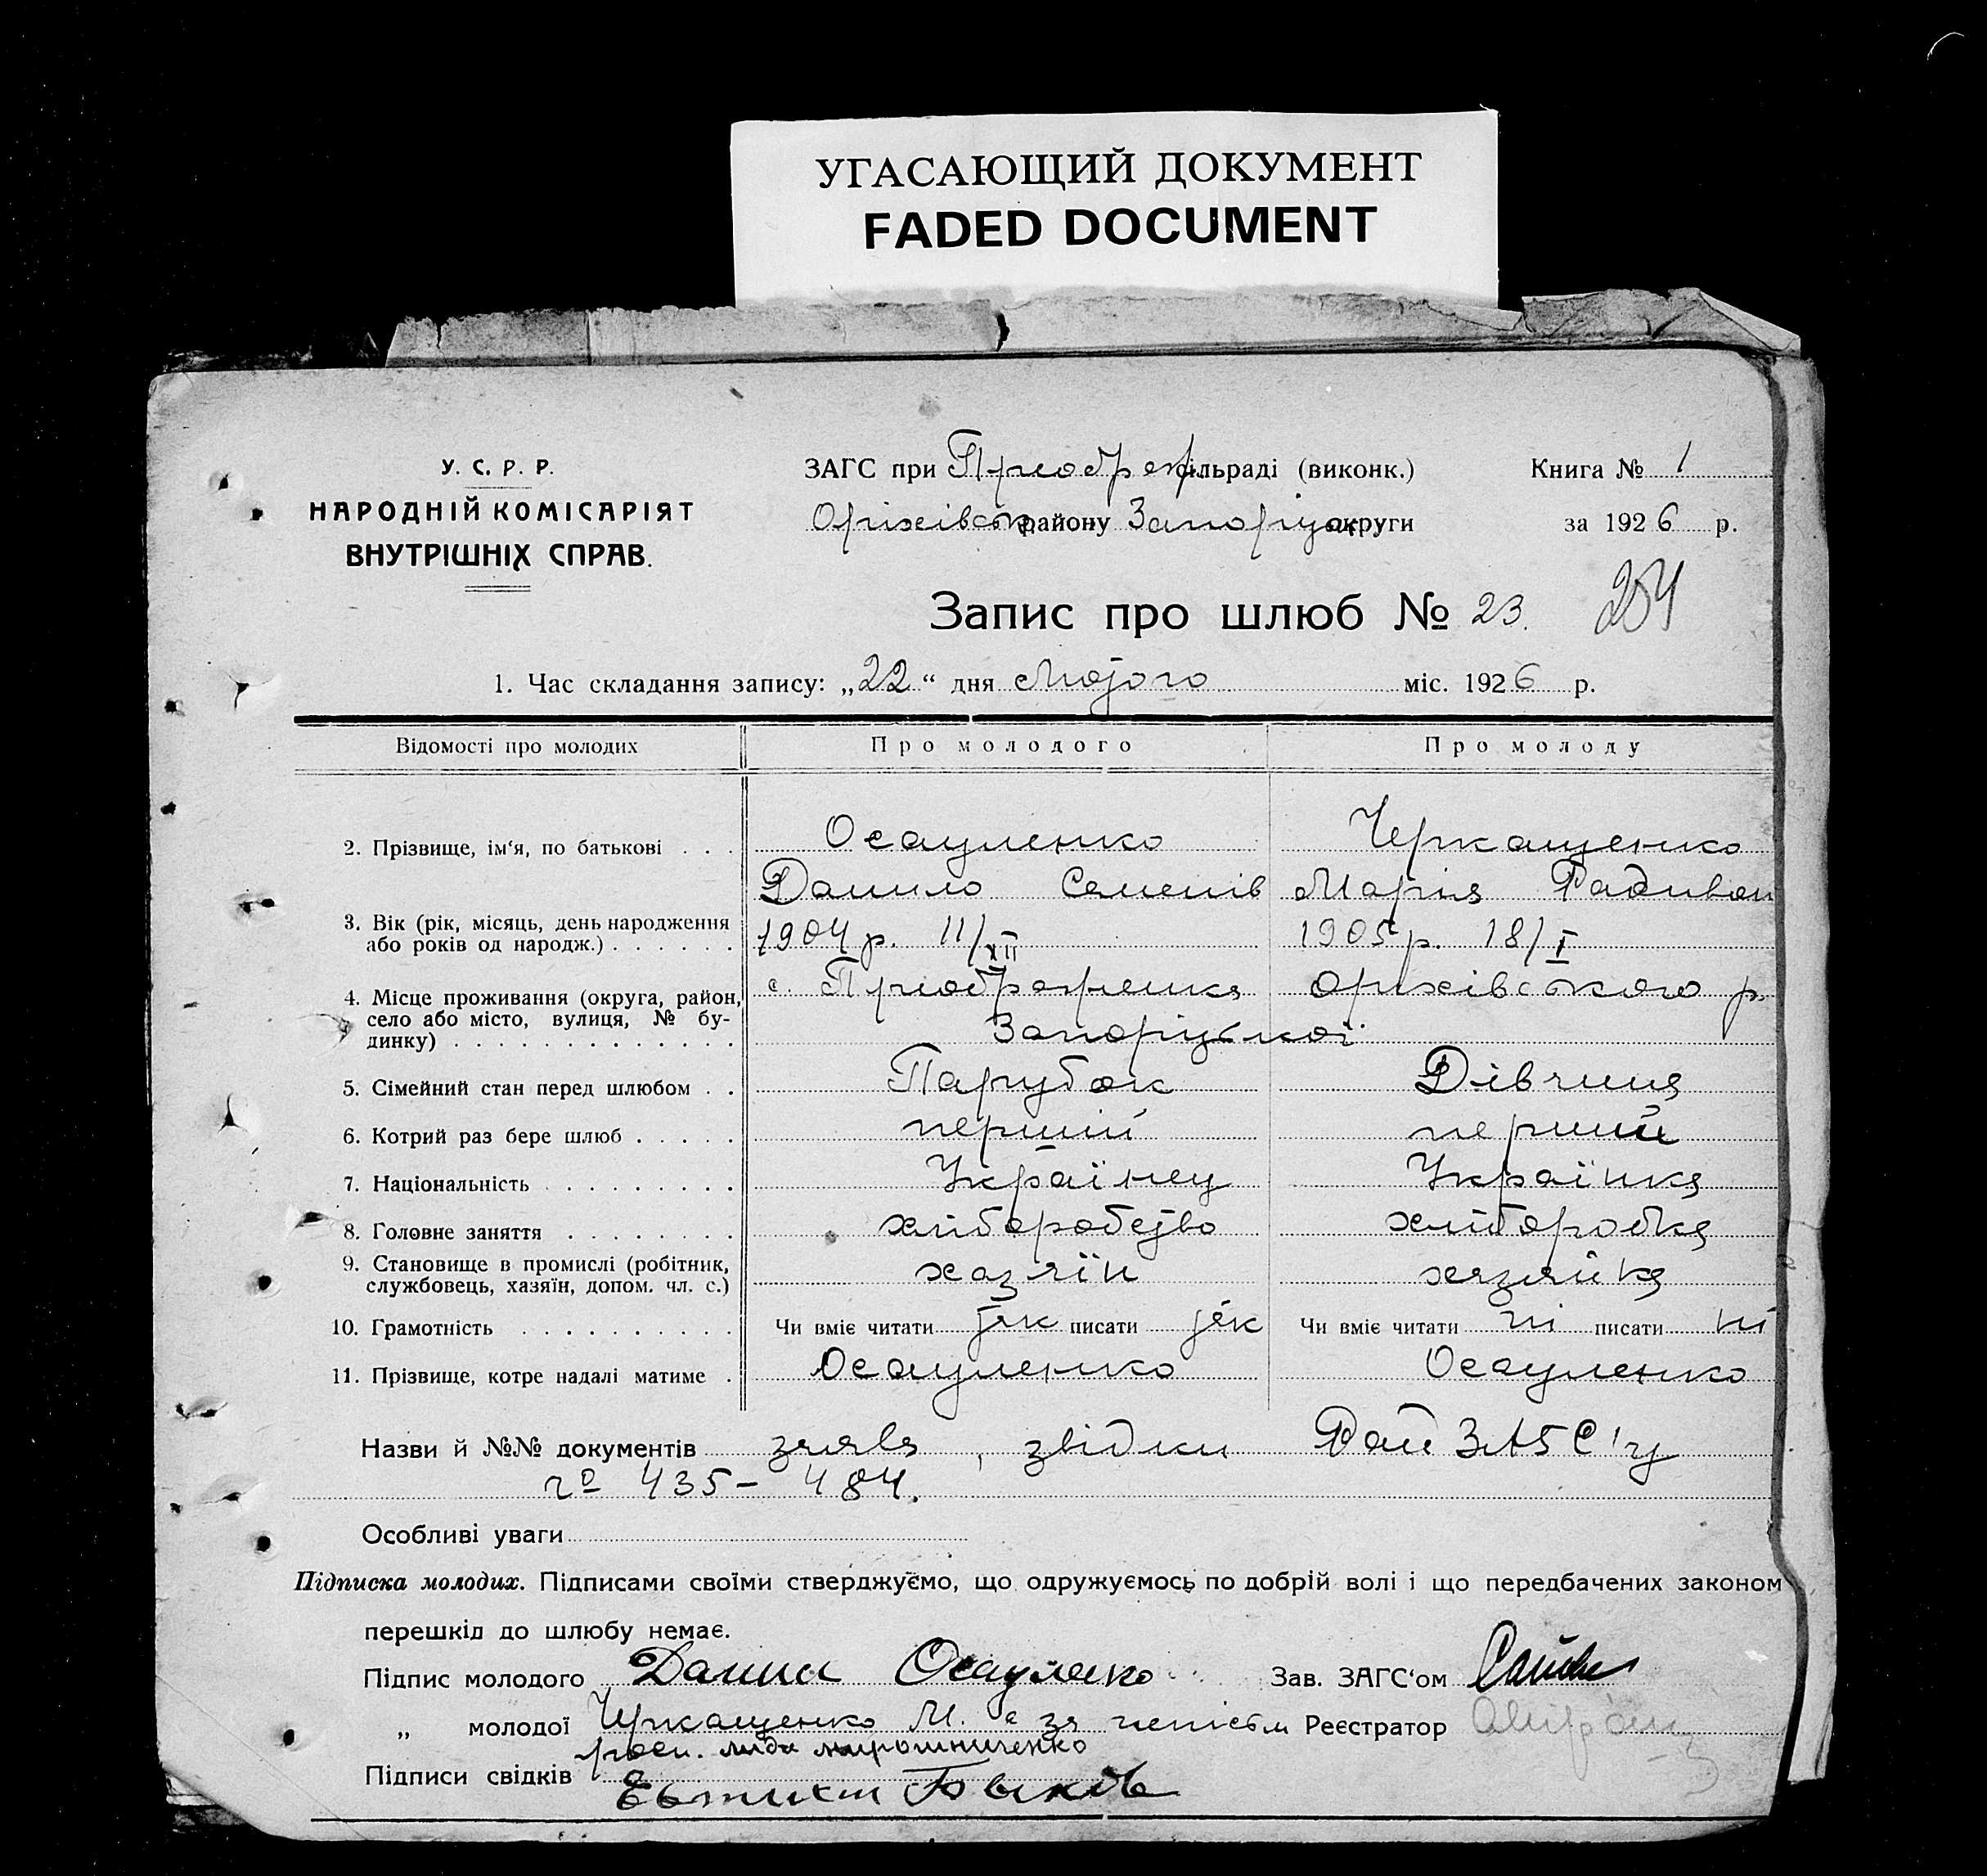 УГАСАЮЩИЙ ДОКУМЕНТ
FADED DOCUMENT
У. С. Р. Р.
НАРОДНІЙ КОМІСАРІЯТ
ВНУТРІШНІХ СПРАВ.
ЗАГС при Приображ. сільраді (виконк.)
Оріхівськ. району Запоріцьк. округи
Книга № 1
за 1926 р.
Запис про шлюб № 23. 254
1. Час складання запису: „22“ дня Лютого міс. 1926 р.
Відомості про молодих Про молодого Про молоду
2. Прізвище, ім'я, по батькові . . . Осауленко Черкащенко
Данило Семенів Марія Радивон
3. Вік (рік, місяць, день народження
або років од народж.) . . . . . . 1904 р. 11/XII 1905 р. 18/I
4. Місце проживання (округа, район,
село або місто, вулиця, № бу-
динку) . . . . . . . . . . . . .
с. Приображенка Оріхівського р.
Запоріцької
5. Сімейний стан перед шлюбом . . Парубок Дівчина
6. Котрий раз бере шлюб . . . . . перший перший
7. Національність . . . . . . . . . Українец Українка
8. Головне заняття . . . . . . . . хліборобство хліборобка
9. Становище в промислі (робітник,
службовець, хазяїн, допом. чл. с.) хазяїн хазяйка
10. Грамотність . . . . . . . . . . Чи вміє читати так писати так Чи вміє читати ні писати ні
11. Прізвище, котре надалі матиме . Осауленко Осауленко
Назви й №№ документів заява, звідки Рай ЗАГС'у
№ 435– 484.
Особливі уваги
Підписка молодих. Підписами своїми стверджуємо, що одружуємось по добрій волі і що передбачених законом
перешкід до шлюбу немає.
Підпис молодого Данил Осауленко Зав. ЗАГС'ом
„ молодої Черкащенко М. а за неписьм Реєстратор
росп. Мирошниченко
Підписи свідків